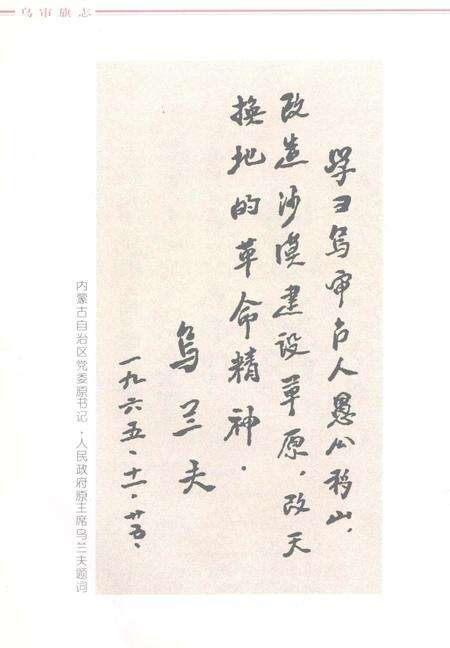 乌审旗志
学习乌审召人愚公移山，
改造沙漠建设草原，改天
换地的革命精神．
乌兰夫
一九六五、十一、廿五、
内蒙古自治区党委原书记·人民政府原主席乌兰夫题词